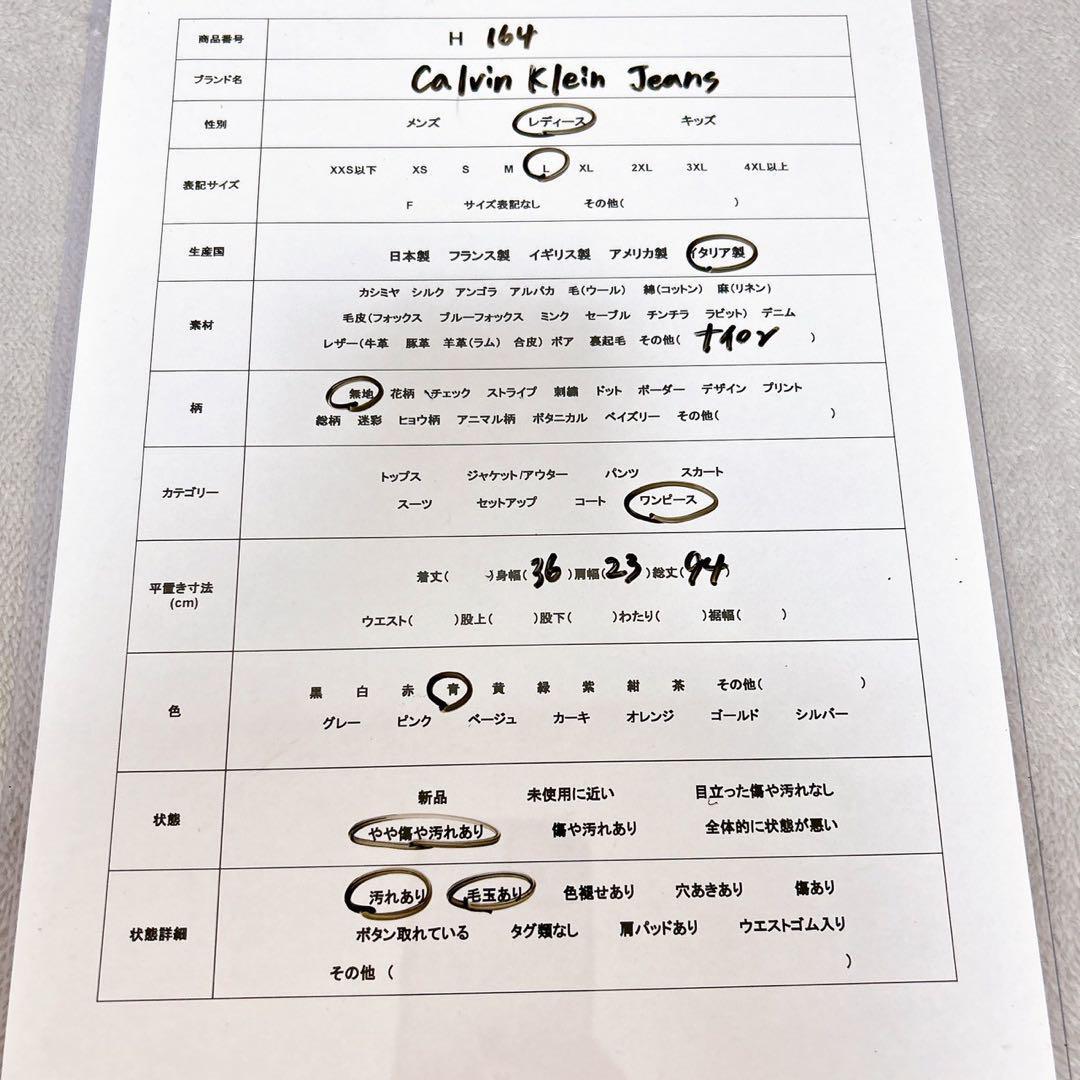 商品番号 H 164
ブランド名 Calvin Klein Jeans
性別 メンズ レディース キッズ
表記サイズ
XXS以下 XS S M L XL 2XL 3XL 4XL以上
F サイズ表記なし その他( )
生産国 日本製 フランス製 イギリス製 アメリカ製 イタリア製
素材
カシミヤ シルク アンゴラ アルパカ 毛(ウール) 綿(コットン) 麻(リネン)
毛皮(フォックス ブルーフォックス ミンク セーブル チンチラ ラビット) デニム
レザー(牛革 豚革 羊革(ラム) 合皮) ボア 裏起毛 その他( ナイロン )
柄
無地 花柄 チェック ストライプ 刺繍 ドット ボーダー デザイン プリント
総柄 迷彩 ヒョウ柄 アニマル柄 ボタニカル ペイズリー その他( )
カテゴリー
トップス ジャケット/アウター パンツ スカート
スーツ セットアップ コート ワンピース
平置き寸法
(cm)
着丈( )身幅( 36 )肩幅( 23 )総丈( 94 )
ウエスト( )股上( )股下( )わたり( )裾幅( )
色
黒 白 赤 青 黄 緑 紫 紺 茶 その他( )
グレー ピンク ベージュ カーキ オレンジ ゴールド シルバー
状態
新品 未使用に近い 目立った傷や汚れなし
やや傷や汚れあり 傷や汚れあり 全体的に状態が悪い
状態詳細
汚れあり 毛玉あり 色褪せあり 穴あきあり 傷あり
ボタン取れている タグ類なし 肩パッドあり ウエストゴム入り
その他 ( )